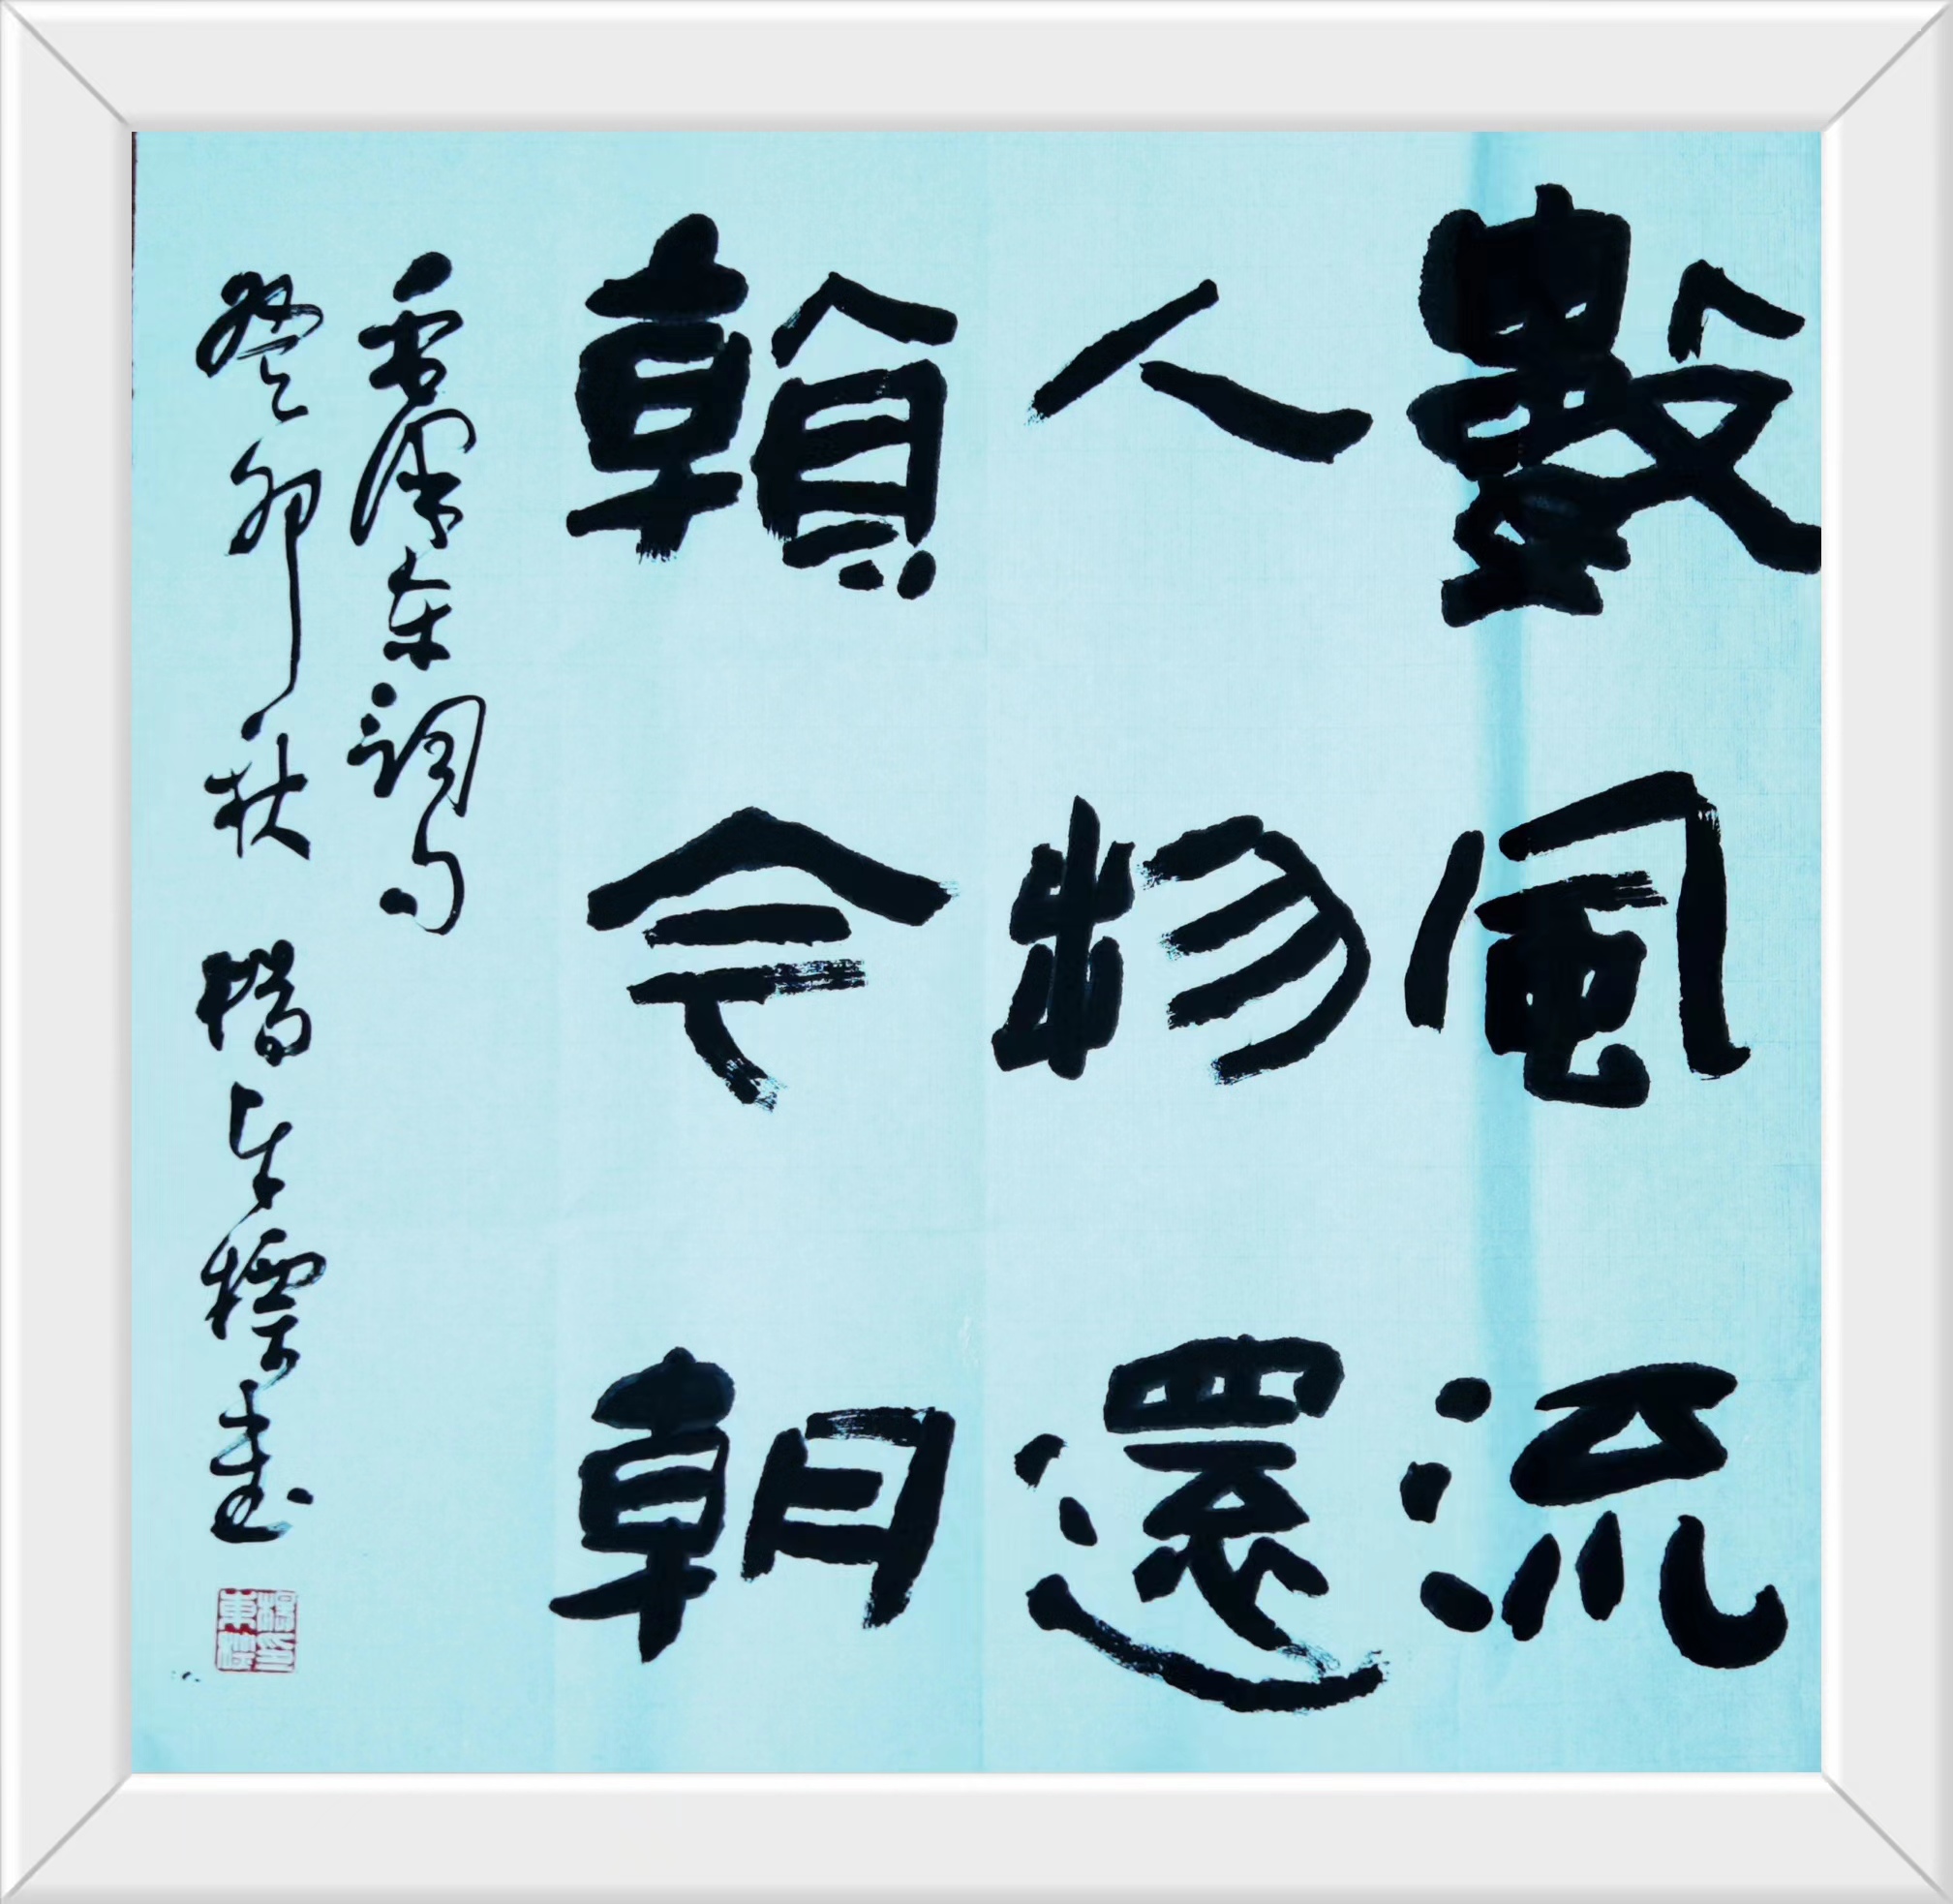 數風流
人物還
看今朝
毛澤東詞句
癸卯秋 楊東標書
楊印東標